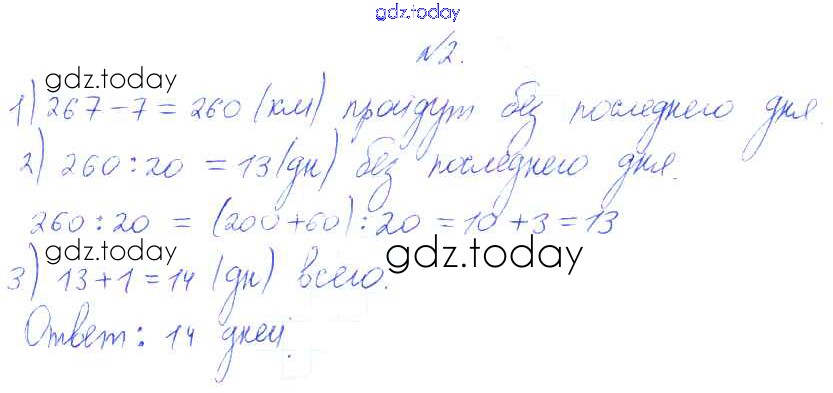 gdz.today
№2.
gdz.today
1) 267-7=260 (км) пройдут без последнего дня.
2) 260:20 = 13 (дн) без последнего дня.
260:20 = (200+60):20 = 10+3=13
gdz.today
3) 13+1=14 (дн) всего.
gdz.today
Ответ: 14 дней.